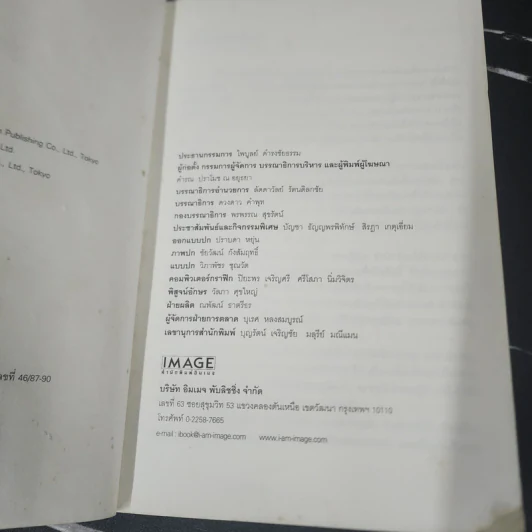 n Publishing Co., Ltd., Tokyo
Ltd.
Ltd., Tokyo
ลขที่ 46/87-90
ประธานกรรมการ ไพบูลย์ ดำรงชัยธรรม
ผู้ก่อตั้ง กรรมการผู้จัดการ บรรณาธิการบริหาร และผู้พิมพ์ผู้โฆษณา
ปราโมช ณ อยุธยา
บรรณาธิการอำนวยการ รัตนดิลกชัย
บรรณาธิการ ดวงดาว
กองบรรณาธิการ พรพรรณ สุขรัตน์
ประชาสัมพันธ์และกิจกรรมพิเศษ บัญชา ธัญญพรพิทักษ์ สิรฎา เกตุเทียม
ออกแบบปก ปราบดา หยุ่น
ภาพปก ชัยวัฒน์ กังสัมฤทธิ์
แบบปก วิภาพัชร
คอมพิวเตอร์กราฟิก ปิยะพร เจริญศรี ศรีโสภา นิ่มวิจิตร
พิสูจน์อักษร วัลภา ศุขใหญ่
ฝ่ายผลิต ณพัฒน์ ราตรีธร
ผู้จัดการฝ่ายการตลาด บุเรศ หลงสมบูรณ์
เลขานุการสำนักพิมพ์ บุญรัตน์ เจริญชัย มลุรีย์ มณีแมน
IMAGE
สำนักพิมพ์อิมเมจ
บริษัท อิมเมจ พับลิชชิ่ง จำกัด
เลขที่ 63 ซอยสุขุมวิท 53 แขวงคลองตันเหนือ เขตวัฒนา กรุงเทพฯ 10110
โทรศัพท์ 0-2258-7665
e-mail : ibook@i-am-image.com www.i-am-image.com